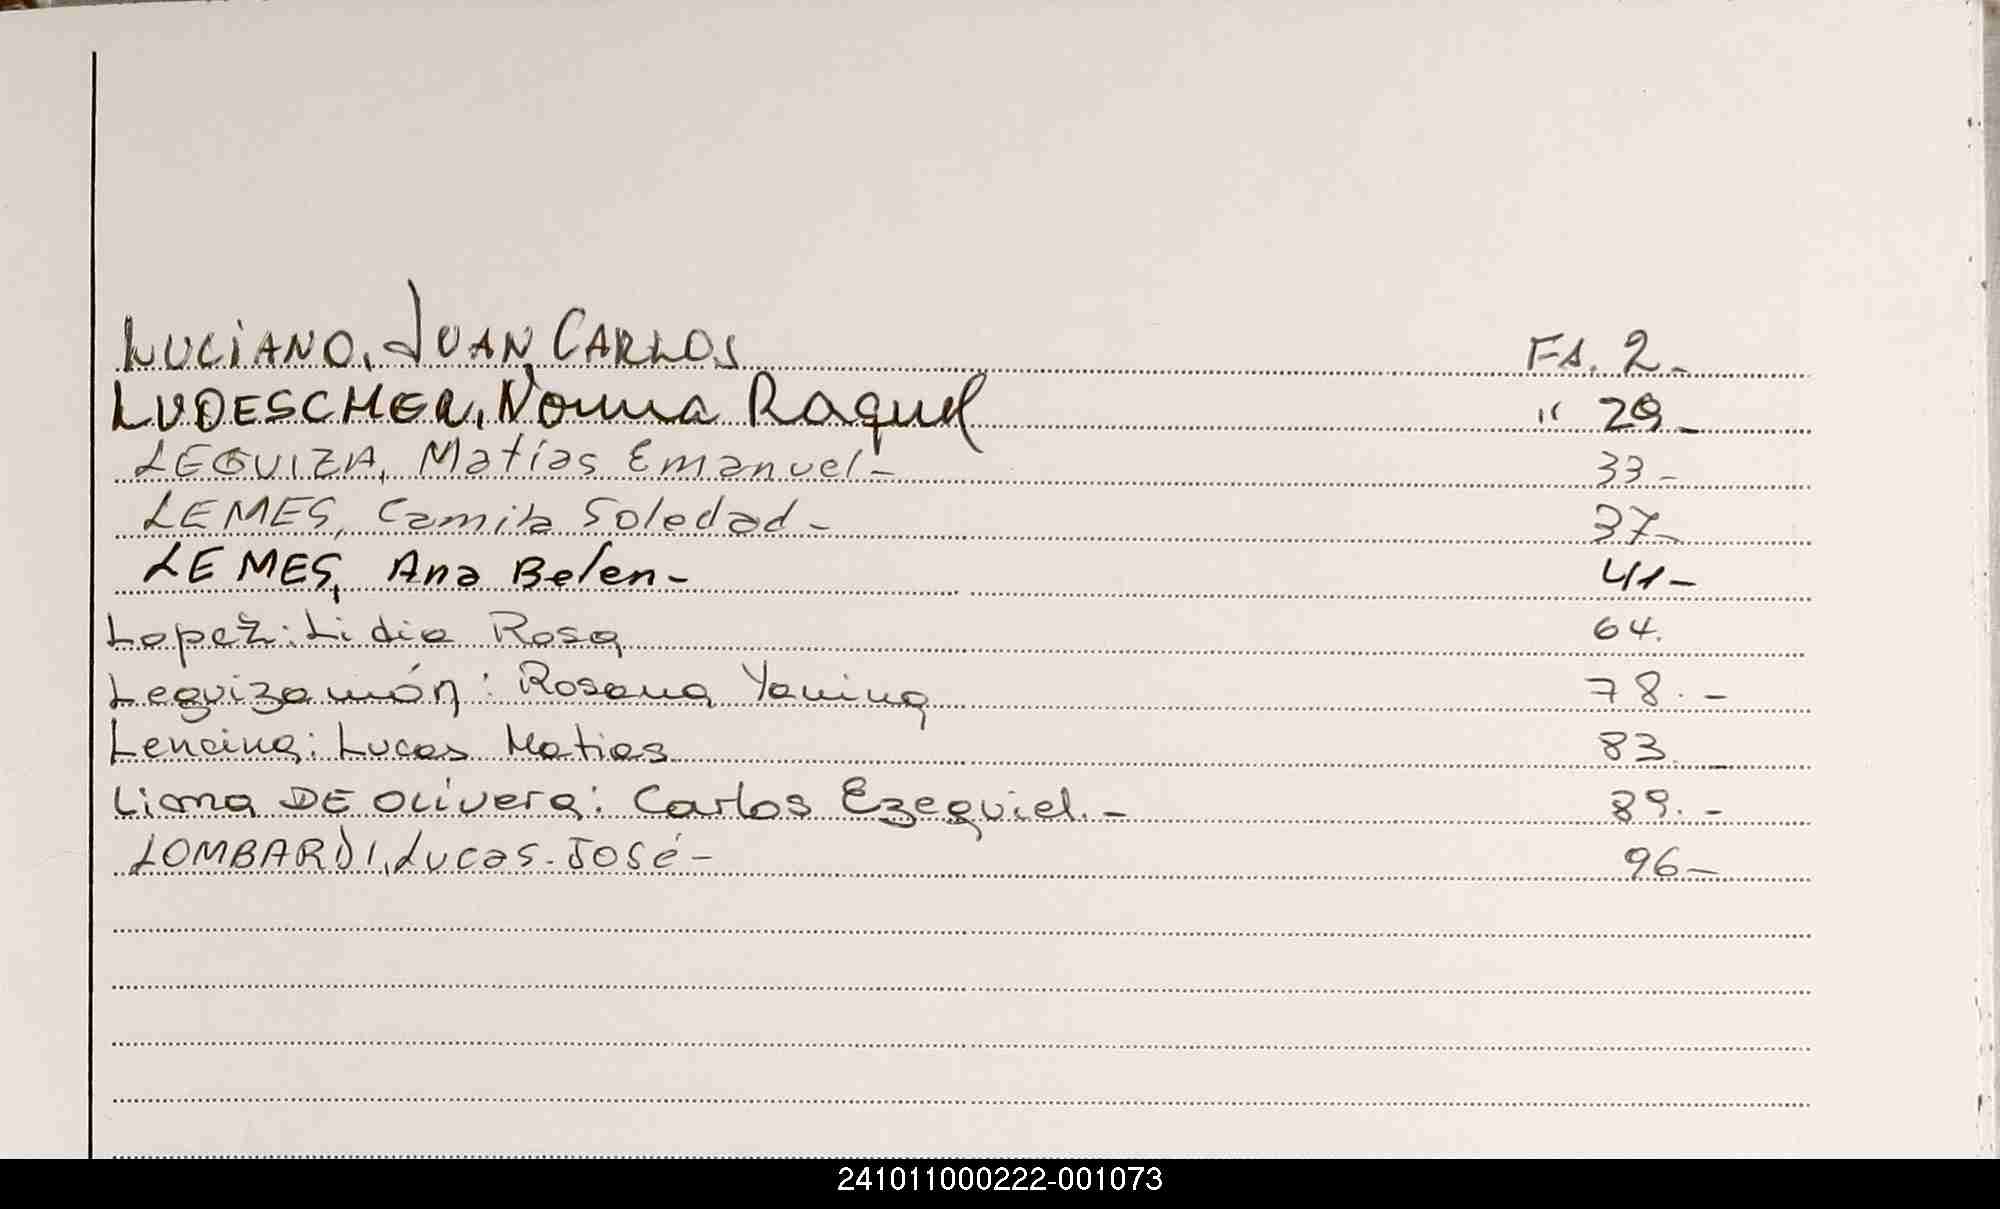 LUCIANO, JUAN CARLOS FS. 2-
LUDESCHER, Norma Raquel " 29-
LEGUIZA, Matías Emanuel- 33-
LEMES, Camila Soledad- 37-
LEMES, Ana Belen- 41-
Lopez: Lidia Rosa 64.
Leguizamón: Rosana Yanina 78.-
Lencina: Lucas Matias 83.-
Lima DE Olivera: Carlos Ezequiel.- 89.-
LOMBARDI, Lucas José- 96-
241011000222-001073